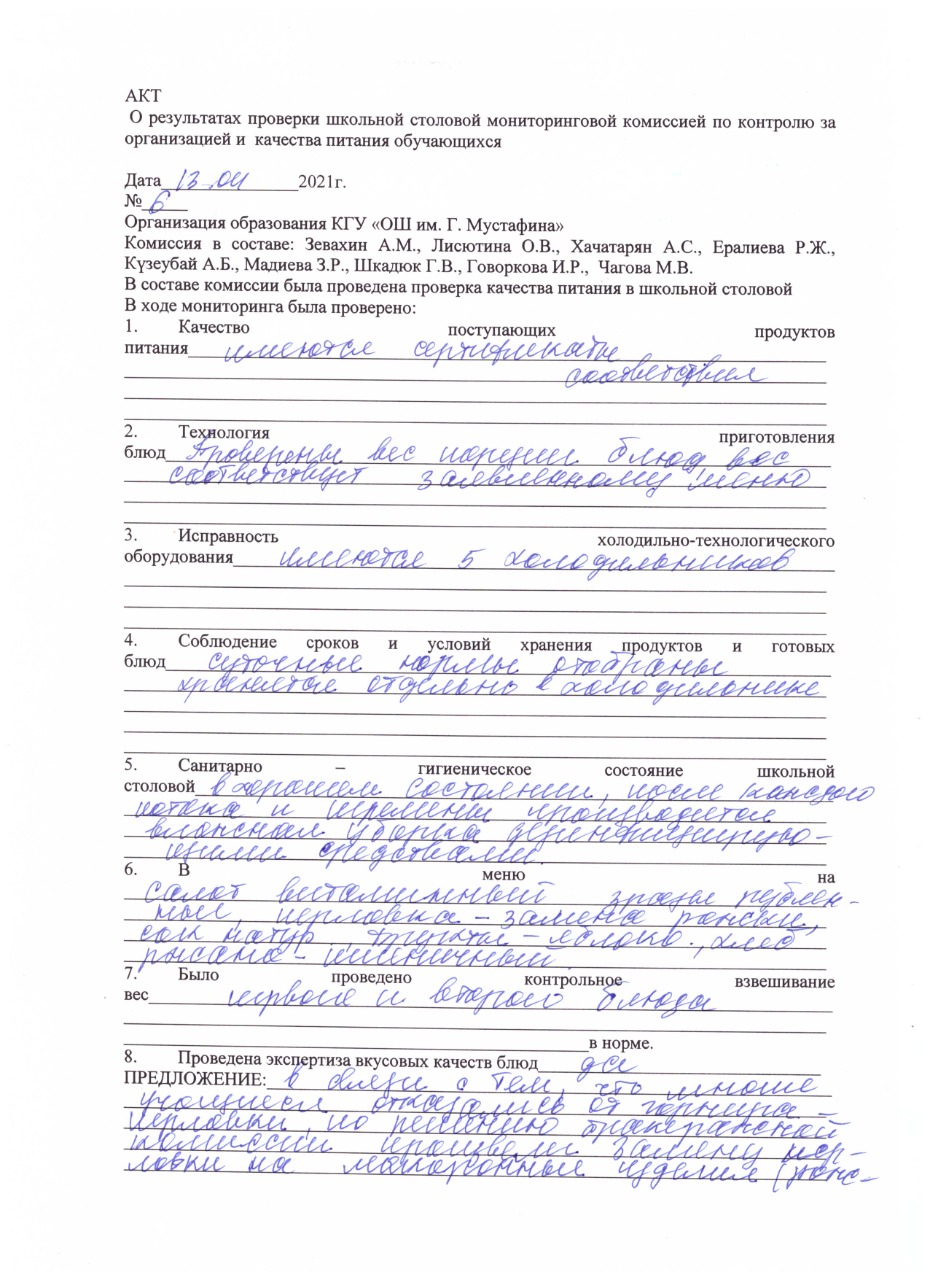 АКТ
О результатах проверки школьной столовой мониторинговой комиссией по контролю за
организацией и качества питания обучающихся
Дата 13.04 2021г.
№ 6
Организация образования КГУ «ОШ им. Г. Мустафина»
Комиссия в составе: Зевахин А.М., Лисютина О.В., Хачатарян А.С., Ералиева Р.Ж.,
Күзеубай А.Б., Мадиева З.Р., Шкадюк Г.В., Говоркова И.Р., Чагова М.В.
В составе комиссии была проведена проверка качества питания в школьной столовой
В ходе мониторинга была проверено:
1. Качество поступающих продуктов
питания имеются сертификаты
соответствия
2. Технология приготовления
блюд Проверены вес порции блюд вес
соответствует заявленному меню
3. Исправность холодильно-технологического
оборудования имеются 5 холодильников
4. Соблюдение сроков и условий хранения продуктов и готовых
блюд суточные нормы отобраны
хранятся отдельно в холодильнике
5. Санитарно – гигиеническое состояние школьной
столовой в хорошем состоянии, после каждого
потока и перемены производится
влажная уборка дезинфицирую-
щими средствами.
6. В меню на
салат витаминный зразы рублен-
ные, перловка – замена рожки,
сок натур. фрукты – яблоко., хлеб
ржано - пшеничный.
7. Было проведено контрольное взвешивание
вес первого и второго блюда
в норме.
8. Проведена экспертиза вкусовых качеств блюд да
ПРЕДЛОЖЕНИЕ: в связи с тем, что многие
учащиеся отказались от гарнира -
перловки, по решению бракеражной
комиссии произвели замену пер-
ловки на макаронные изделия (рож-